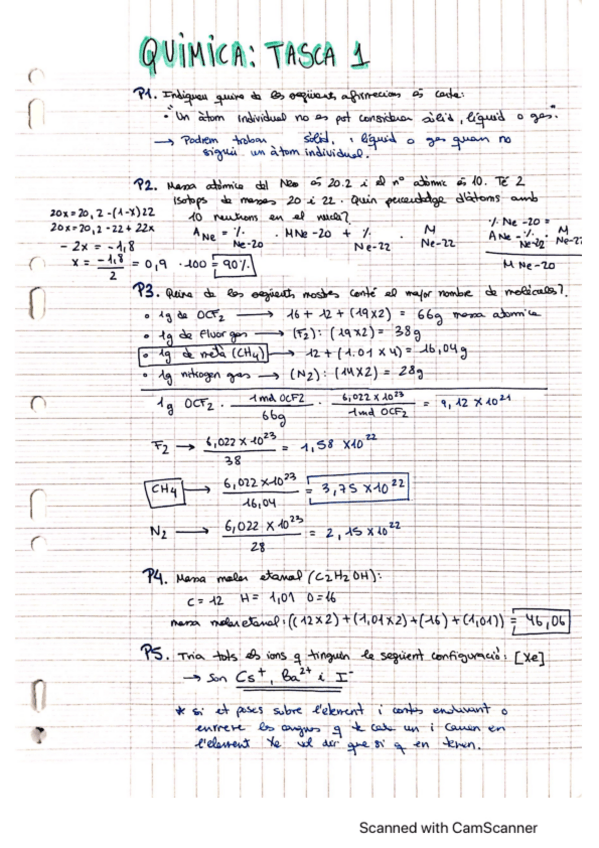 QUIMICA: TASCA 1
P1. Indiqueu quina de les següents afirmacions és certa:
• "Un àtom individual no es pot considerar sòlid, líquid o gas."
→ Podrem trobar sòlid, líquid o gas quan no
sigui un àtom individual.
P2. Massa atòmica del Neo és 20.2 i el nº atòmic és 10. Té 2
isotops de masses 20 i 22. Quin percentatge d'àtoms amb
10 neutrons en el nucli?
20x = 20,2 - (1-x)22
20x = 20,2 - 22 + 22x
- 2x = -1,8
x = -1,8 / 2 = 0,9 · 100 = 90%
A Ne = % Ne-20 · M Ne-20 + % Ne-22 · M Ne-22
% Ne-20 =
A Ne - % Ne-22 · M Ne-22
M Ne-20
P3. Quina de les següents mostres conté el major nombre de molècules?
• 1g de OCF2 → 16 + 12 + (19x2) = 66g massa atomica
• 1g de Fluor gas → (F2): (19x2) = 38g
• 1g de metà (CH4) → 12 + (1.01 x 4) = 16,04g
• 1g nitrogen gas → (N2): (14x2) = 28g
1g OCF2 · 1mol OCF2 / 66g · 6,022 x 10^23 / 1mol OCF2 = 9,12 x 10^21
F2 → 6,022 x 10^23 / 38 = 1,58 x 10^22
CH4 → 6,022 x 10^23 / 16,04 = 3,75 x 10^22
N2 → 6,022 x 10^23 / 28 = 2,15 x 10^22
P4. Massa molar etanal (C2H2OH):
C = 12 H = 1,01 O = 16
massa molar etanal: ((12x2) + (1,01x2) + (16) + (1,01)) = 46,06
P5. Tria tots els ions q tinguin la següent configuració: [Xe]
→ Son Cs+, Ba2+ i I-
* si et poses sobre l'element i contes endavant o
enrrere les cargues q te cada un i cauen en
l'element Xe vol dir que si q en tenen.
Scanned with CamScanner